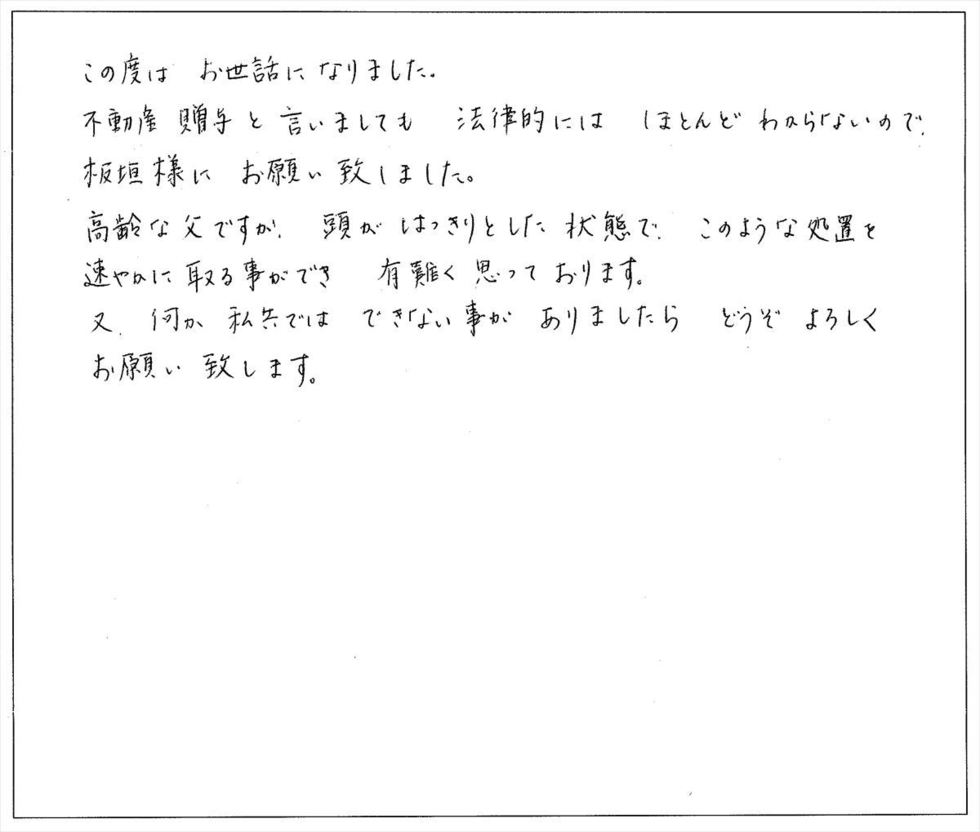 この度は お世話になりました。
不動産 贈与と言いましても 法律的には ほとんど わからないので、
板垣様に お願い致しました。
高齢な父ですが、頭が はっきりとした状態で、このような処置を
速やかに取る事ができ 有難く思っております。
又、何か 私共では できない事が ありましたら どうぞ よろしく
お願い致します。